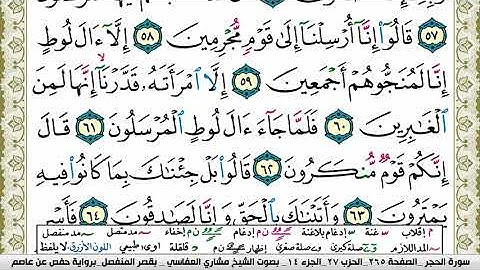 ٥٧ قَالُوٓا۟ إِنَّآ أُرْسِلْنَآ إِلَىٰ قَوْمٍ مُّجْرِمِينَ ٥٨ إِلَّآ ءَالَ لُوطٍ
إِنَّا لَمُنَجُّوهُمْ أَجْمَعِينَ ٥٩ إِلَّا ٱمْرَأَتَهُۥ قَدَّرْنَآ إِنَّهَا لَمِنَ
ٱلْغَٰبِرِينَ ٦٠ فَلَمَّا جَآءَ ءَالَ لُوطٍ ٱلْمُرْسَلُونَ ٦١ قَالَ
إِنَّكُمْ قَوْمٌ مُّنكَرُونَ ٦٢ قَالُوا۟ بَلْ جِئْنَٰكَ بِمَا كَانُوا۟ فِيهِ
يَمْتَرُونَ ٦٣ وَأَتَيْنَٰكَ بِٱلْحَقِّ وَإِنَّا لَصَٰدِقُونَ ٦٤ فَأَسْ
م إقلاب غنة ن إدغام بلاغنة ن م إدغام ن م إخفاء مد متصل مد منفصل
المد اللازم صلة كبرى و صلة صغرى إظهار ن م قلقلة اوى طبيعي اللون الأزرق لا يلفظ
سورة الحجر _ الصفحة ٢٦٥ _ الحزب ٢٧ _ الجزء ١٤ _ بصوت الشيخ مشاري العفاسي _ بقصر المنفصل _ برواية حفص عن عاصم